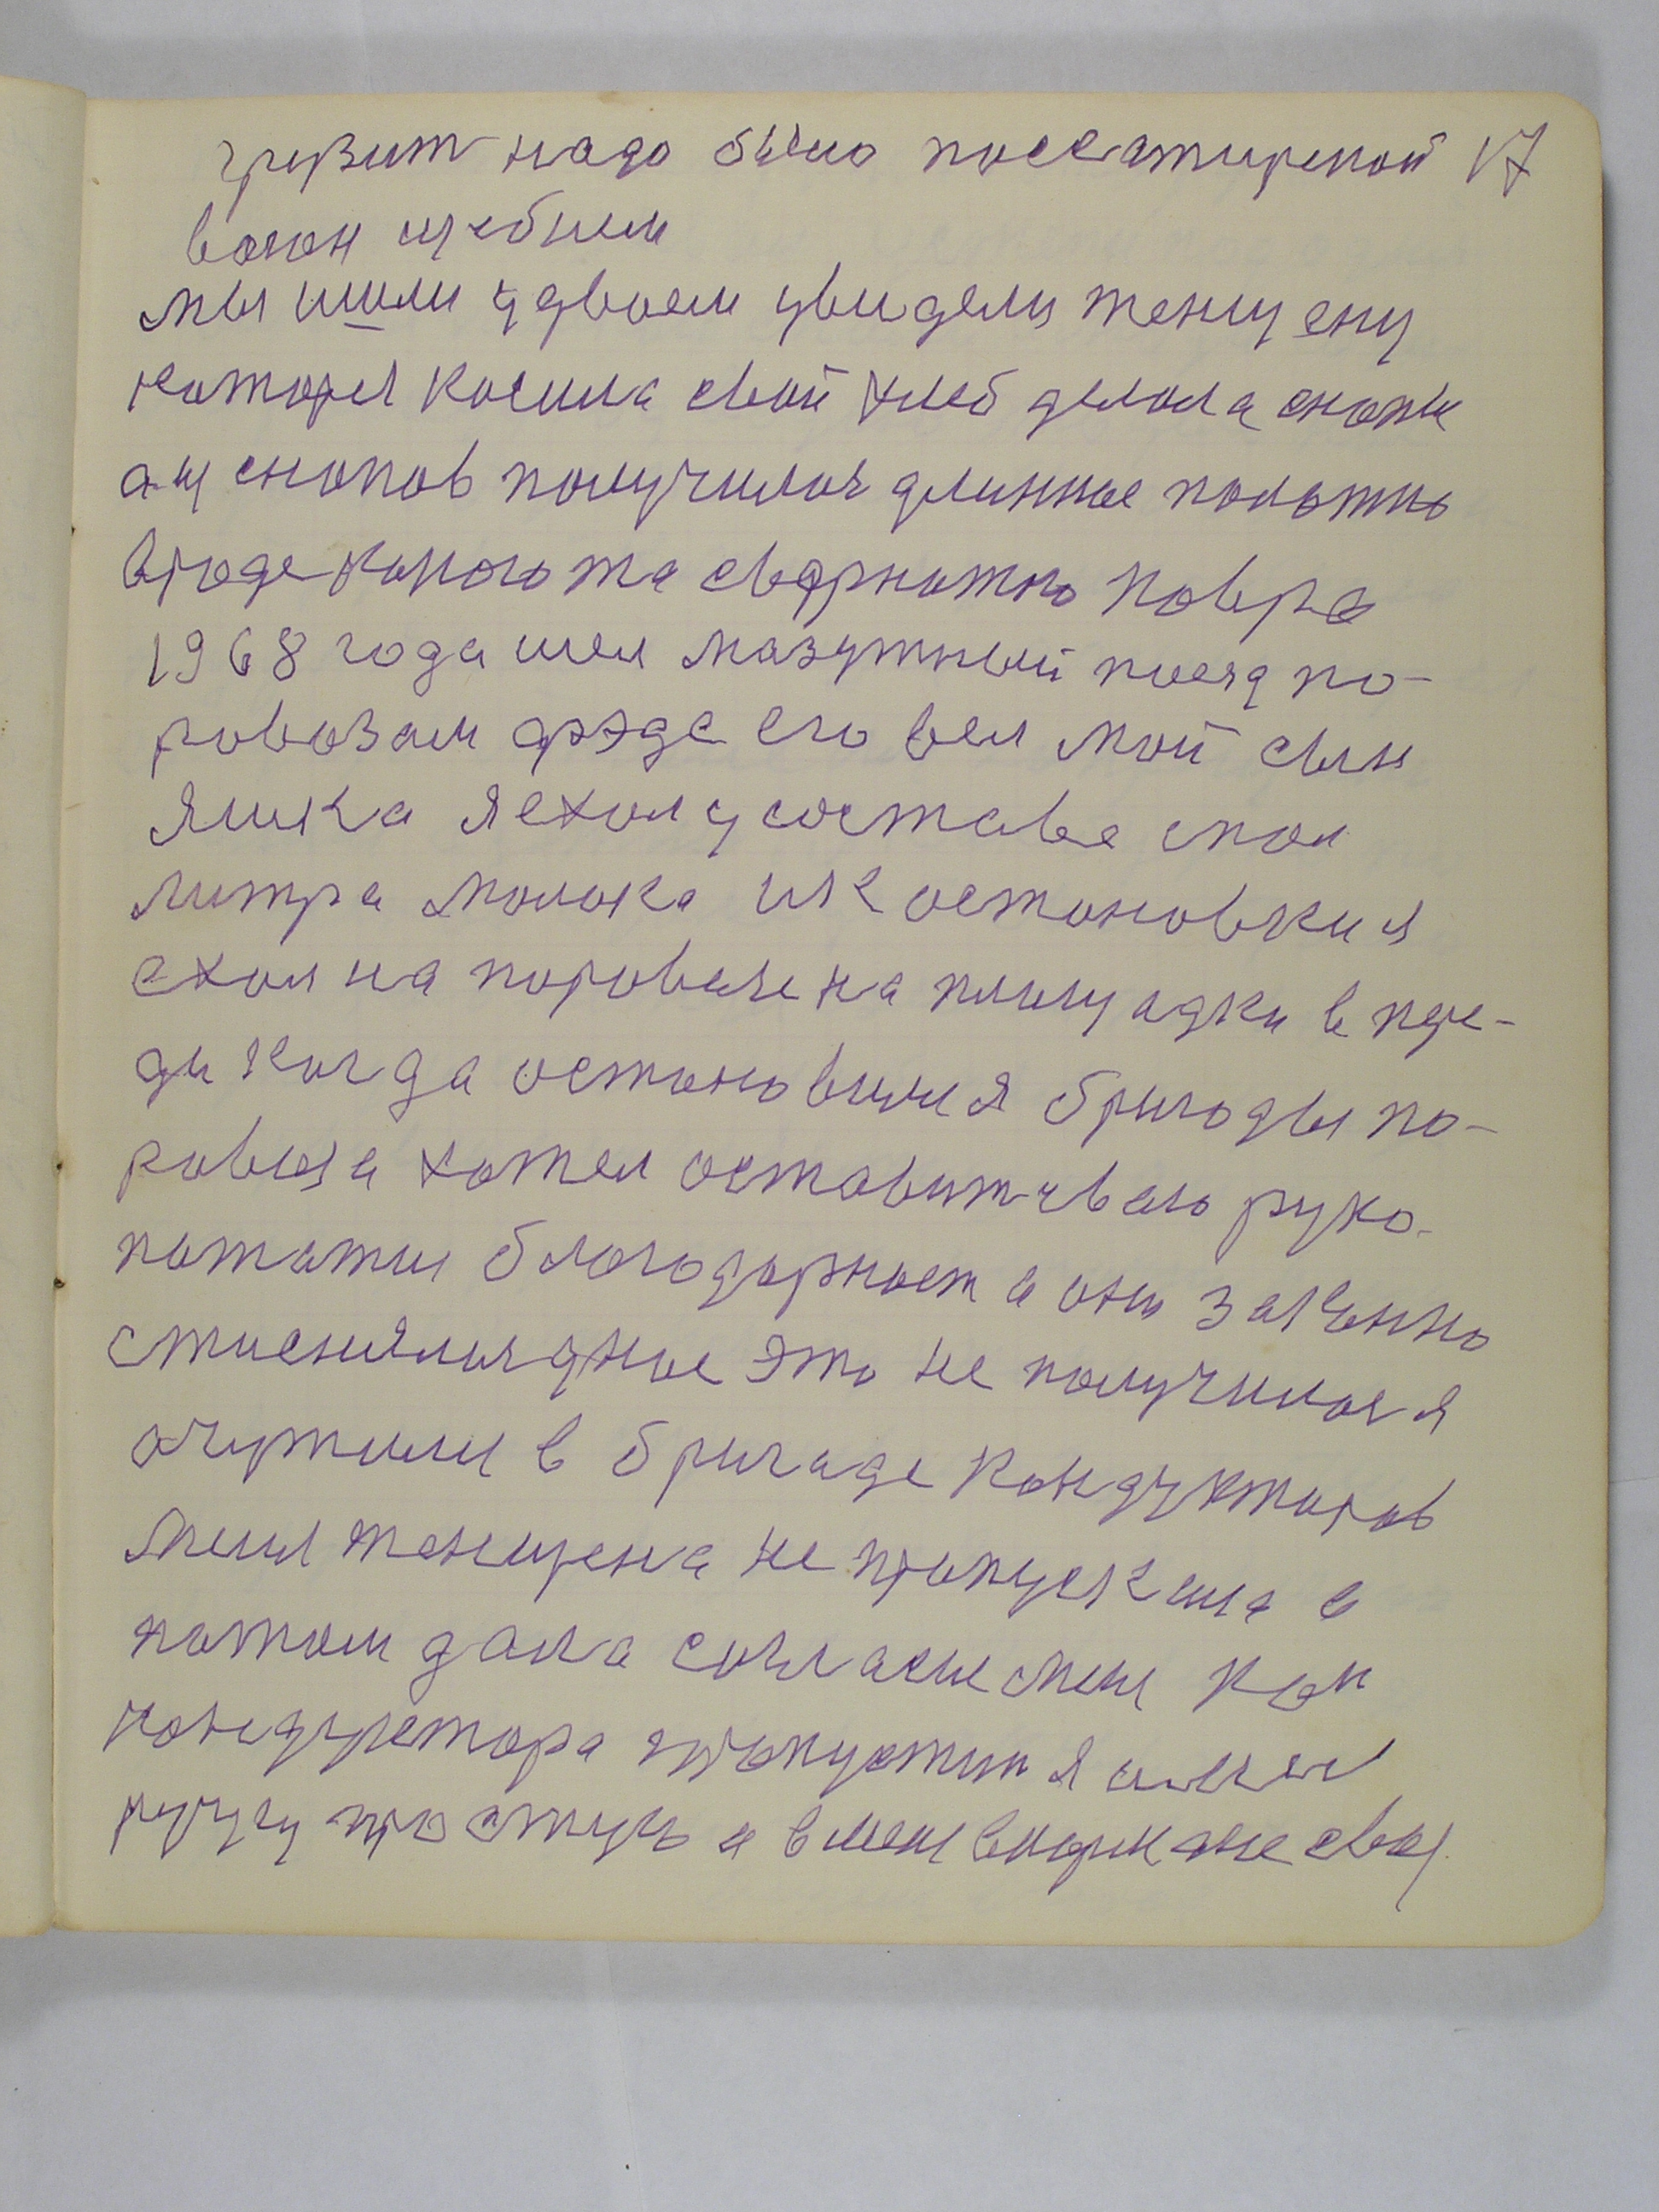 грузит надо было поссатирской 17
вагон щебнем
мы шли удвоем увидели женщену
каторая косила свой хлеб делала снопы
а из снопов получилось длинное полотно
вроде какого та свернотого ковра
1968 года шел мазутный поезд по-
ровозам фэдэ его вел мой сын
Яшка я ехол у составе с пол
литра молока и к остоновки я
ехол на поровозе на площадки в пере-
ди когда остоновился бригоды по-
ровоза хотел оставить сваю руко-
пажатия благодарност а они законно
стиснялись дное это не получилося
очутился в бригаде кондукторов
меня женщена не пропускала а
потом дала согласие меня как
кондуктора пропустил я
ручку а в меня же